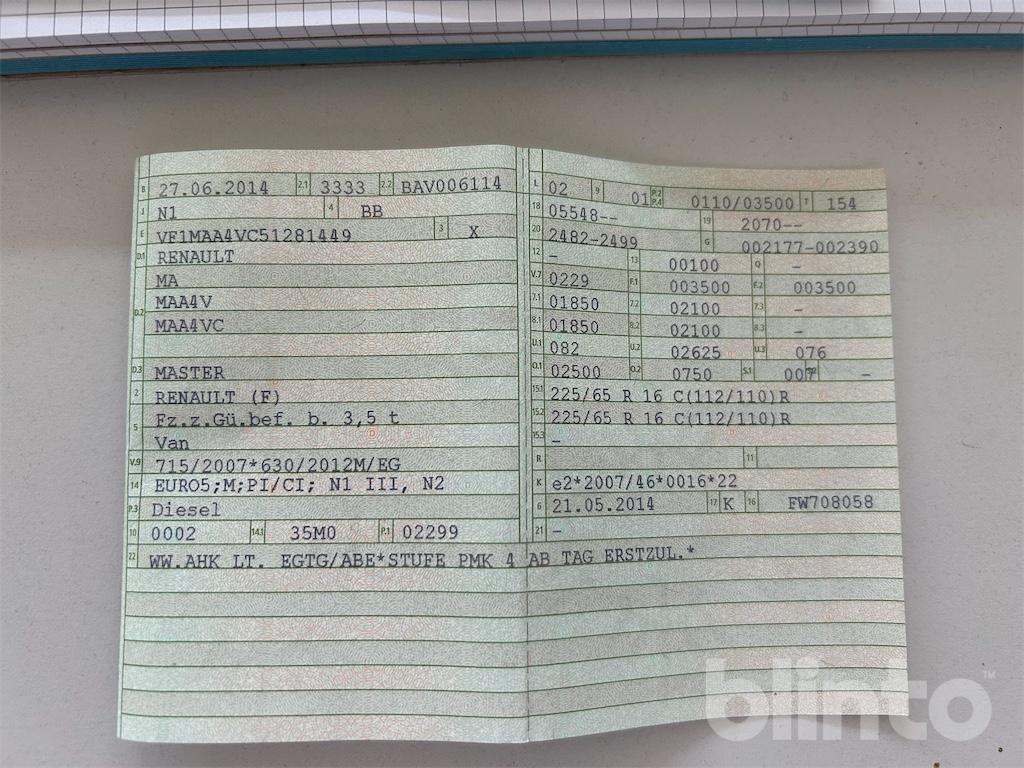 B 27.06.2014 2.1 3333 2.2 BAV006114
J N1 4 BB
E VF1MAA4VC51281449 3 X
D.1 RENAULT
MA
D.2 MAA4V
MAA4VC
D.3 MASTER
2 RENAULT (F)
5 Fz.z.Gü.bef. b. 3,5 t
Van
V.9 715/2007*630/2012M/EG
14 EURO5;M;PI/CI; N1 III, N2
P.3 Diesel
10 0002 14.1 35M0 P.1 02299
L 02 9 01 P.2 P.4 0110/03500 T 154
18 05548-- 19 2070--
20 2482-2499 G 002177-002390
12 - 13 00100 Q -
V.7 0229 F.1 003500 F.2 003500
7.1 01850 7.2 02100 7.3 -
8.1 01850 8.2 02100 8.3 -
U.1 082 U.2 02625 U.3 076
O.1 02500 O.2 0750 S.1 007 S.2 -
15.1 225/65 R 16 C(112/110)R
15.2 225/65 R 16 C(112/110)R
15.3 -
R 11
K e2*2007/46*0016*22
6 21.05.2014 17 K 16 FW708058
21 -
22 WW.AHK LT. EGTG/ABE*STUFE PMK 4 AB TAG ERSTZUL.*
blinto™